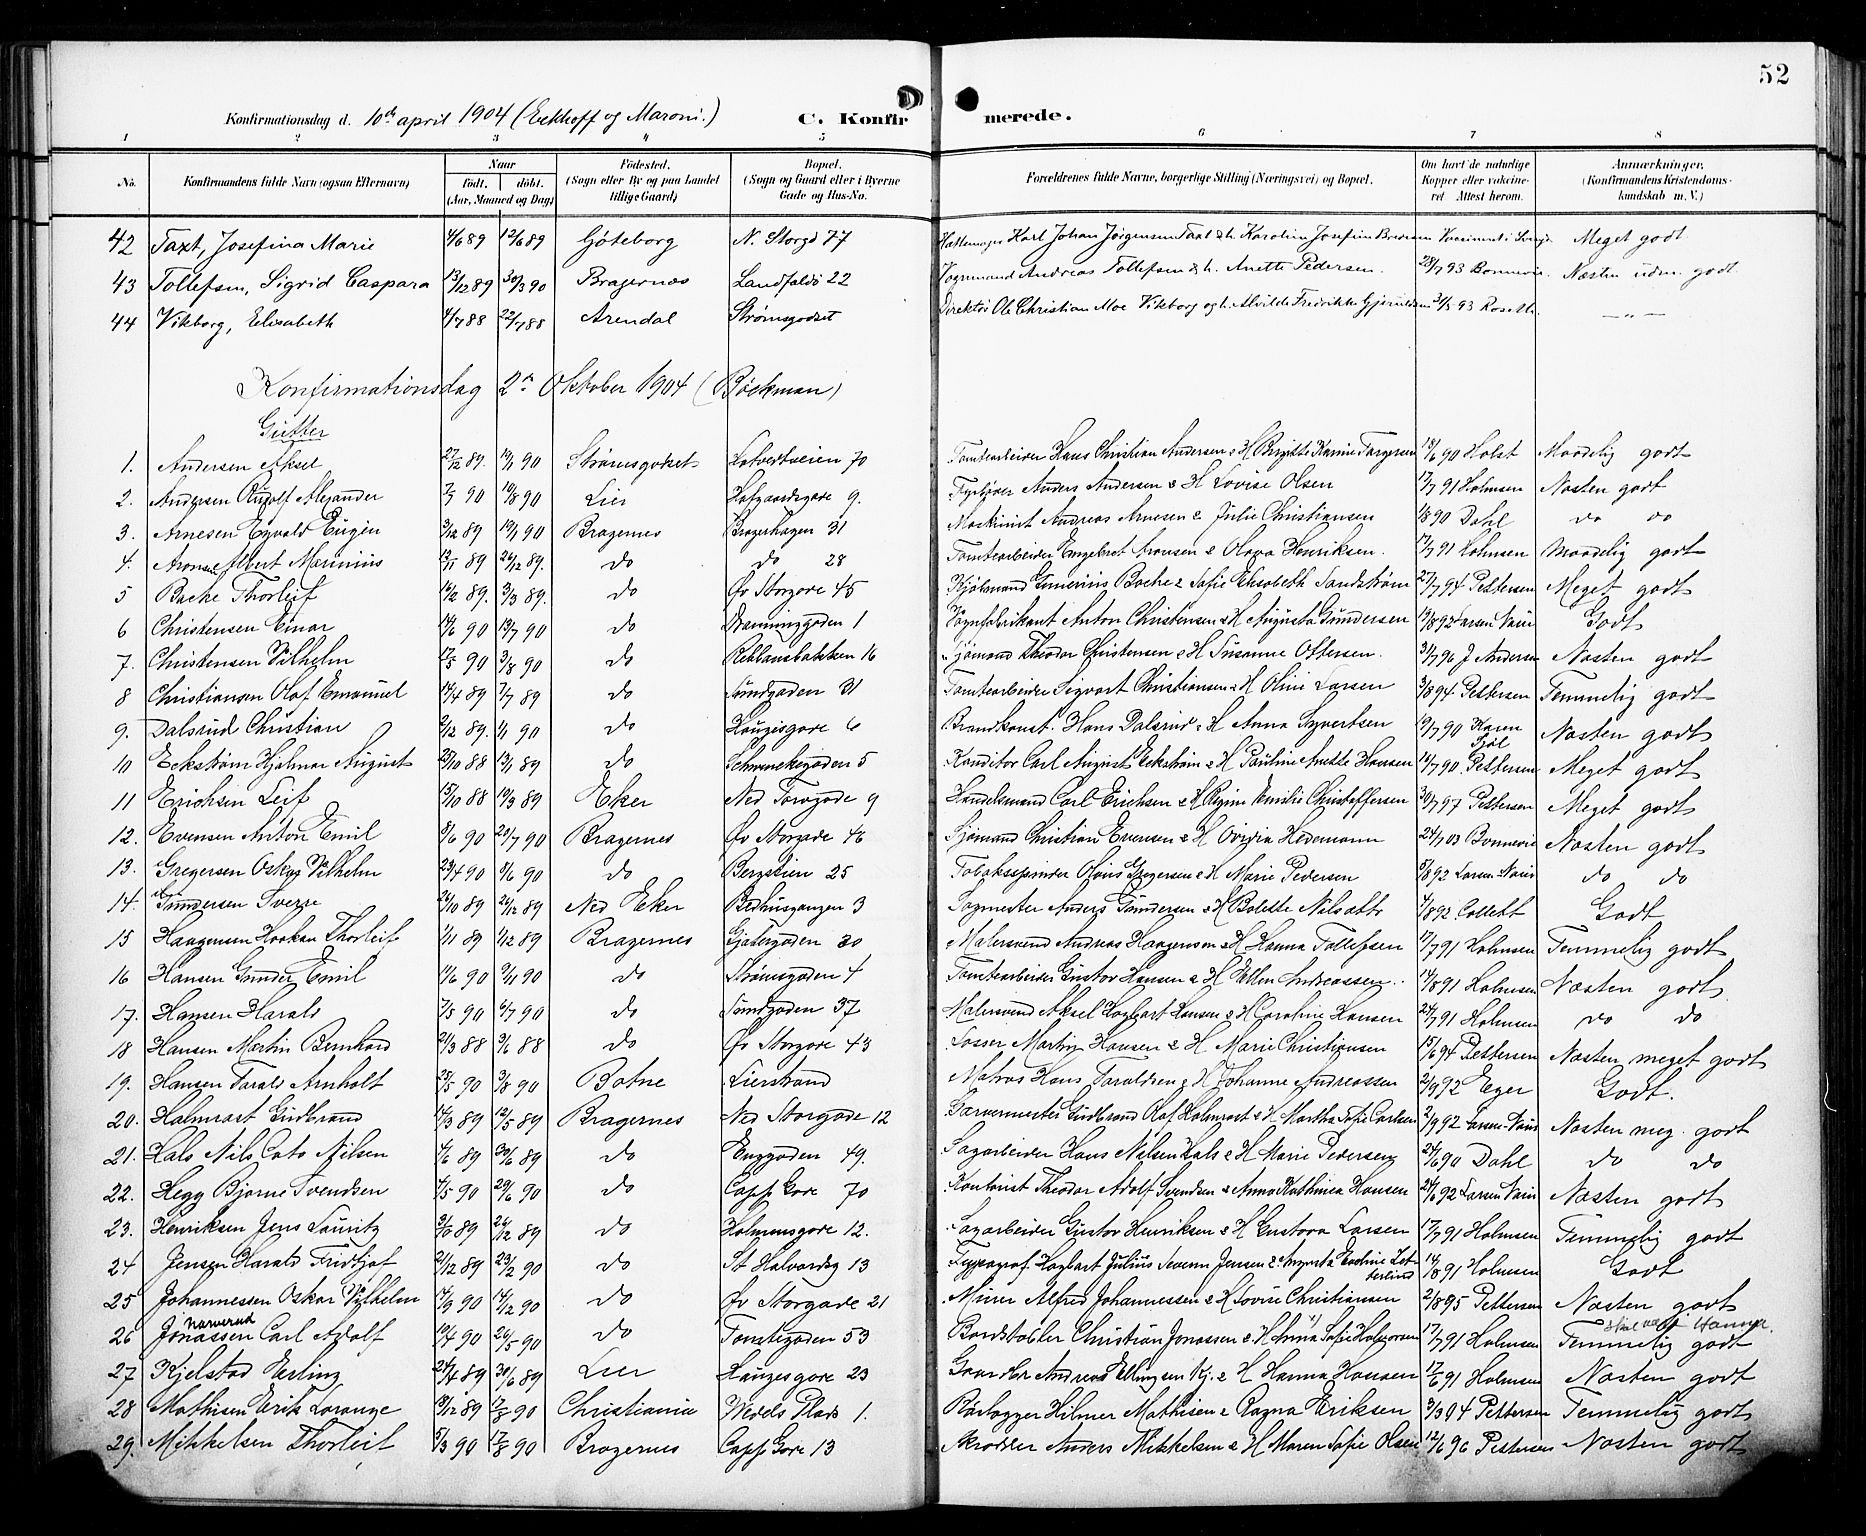 52
Konfirmationsdag d. 10de april 1904 (Eckhoff og Maroni.) C. Konfirmerede.
1 2 3 4 5 6 7 8
No. Konfirmandens fulde Navn (ogsaa Efternavn) Naar født. døbt. (Aar, Maaned og Dag) Fødested. (Sogn eller By og paa Landet tillige Gaard) Bopæl. (Sogn og Gaard eller i Byerne Gade og Hus-No. Forældrenes fulde Navne, borgerlige Stilling (Næringsvei) og Bopæl. Om havt de naturlige Kopper eller vakcineret. Attest herom. Anmærkninger. (Konfirmandens Kristendomskundskab m. V.)
42 Taxt, Josefina Marie 4/6 89 12/6 89 Göteborg N. Storgd 77 Karl Johan Jørgensen Taxt & h. Karoline Josefine Meget godt
43 Tollefsen, Sigrid Caspara 13/12 89 30/3 90 Bragernæs Landfaldö 22 Vognmand Andreas Tollefsen & h. Anette Pedersen. 28/7 93 Bonnevie. Næsten udm. godt.
44 Vikborg, Elisabeth 4/7 88 22/7 88 Arendal Strømsgodset Direktør Ole Christian Moe Vikborg og h. Alvilde Fredrikke 93 — " —
Konfirmationsdag 2n Oktober 1904 (Bøckman)
Gutter
1. Andersen Aksel 27/12 89. 19/1 90 Strømsgodset 70 Tomtearbeider Hans Christian Andersen & H Birgitte Karine 13/6 90 Holst Maadelig godt
2. Andersen Rudolf Alexander 7/7 90 10/8 90 Lier Hafgaardsgade 9. Fyrbøder Anders Andersen & H Lovise Olsen 17/7 91 Holmsen Næsten godt
3. Arnesen Eyvald Eugen 3/12 89 19/1 90 Bragernes Bragerhagen 31 Maskinist Andreas Arnesen & Julie Christiansen 90 Dahl do do
4. Aronsen Albert Marinius 12/11 89 26/12 89. do do 28 Tomtearbeider Engebret Aronsen & Olava Henriksen. 17/7 91 Holmsen Maadelig godt
5 Bache Thorleif 16/2 89. 3/3 89. do Øv Storgade 45 Bache & Sofie Elisabeth Sandstrøm 27/7 94 Pettersen Meget godt
6 Christensen Einar 14/6 90 13/7 90 do Dronninggaden 1 Vognfabrikant Anton Christensen & H Augusta Gundersen 13/8 92 Larsen Naur Godt
7. Christensen Vilhelm 17/5 90 3/8 90 do Rebbansbakken 16 Sjømand Theodor Christensen & H Susanne Ottersen. 31/7 96 J Andersen Næsten godt
8 Christiansen Olaf Emanuel 14/4 89 7/7 89 do Sundgaden 31 Tomtearbeider Sigvart Christiansen & H Oline Larsen 3/8 94 Pettersen Temmelig godt
9. Dalsrud Christian 2/12 89. 1/1 90 do Haugesgade 6 Brandkonst. Hans Dalsrud & H Anna Syvertsen 19/7 90 Karen Næsten godt
10 Eckstrøm Hjalmar August 25/10 88 13/1 89 do Schwenckegaden 5 Konditor Carl August Eckstrøm & H Pauline Anette Hansen 14/7 90. Pettersen Meget godt
11 Erichsen Leif 15/10 88 10/3 89 Eker Ned Torvgade 9 Handelsmand Carl Erichsen & H Regine Emilie Christoffersen 30/7 97 Pettersen Meget godt
12. Evensen Anton Emil 8/6 90 20/7 90 Bragernes Øv Storgade 46 Sjømand Christian Evensen & H Ovidia Hedemann 24/7 03 Bonnevie Næsten godt
13. Gregersen Oskar Vilhelm 23/4 90 8/6 90 do Bergstien 25 Tobaksspinder Olaus Gregersen & H Marie Pedersen 5/8 92 Larsen-Naur do do
14. Gundersen Sverre 26/10 89 26/12 89 Ned Eker Bedhusgangen 3 Sagmester Anders Gundersen & H Bolette Nilsdttr 7/8 92 Collett Godt
15 Haagensen Haakon Thorleif 1/11 89 1/12 89 Bragernes Gjætergaden 30 Malersvend Andreas Haagensen & H Hanna Tollefsen 17/7 91 Holmsen Temmelig godt
16 Hansen Gunder Emil 11/6 90 9/11 90 do Strømsgaden 4 Tomtearbeider Gustav Hansen & H Ellen Andreassen.. 14/8 91 Holmsen Næsten godt
17. Hansen Harald 7/5 90 6/7 90 do Sundgaden 37 Malersvend Aksel Hagbart Hansen & H Caroline Hansen 24/7 91 Holmsen do do
18 Hansen Martin Bernhard 21/3 88 3/6 88 do Øv Storgade 43 Losser Martin Hansen & H Marie Christiansen 15/6 94 Pettersen Næsten meget godt
19. Hansen Tarald Arnholt 25/5 90 3/8 90 Botne Lierstrand Matros Hans Taraldsen & H Johanne Andreassen 2/9 92 Eger Godt.
20. Holmrast Gudbrand 14/3 89 12/5 89 Bragernes Ned Storgade 12 Garvermester Gudbrand Olaf Holmrast & H Martha Sofie Carlsen 2/9 92 Larsen-Naur Næsten meg. godt
21. Hals Nils Cato Nilsen 4/6 89 30/6 89 do Enggaden 49. Sagarbeider Hans Nielsen Hals & H Marie Pedersen 24/6 90 Dahl do do
22. Hegg Bjarne Svendsen 4/5 90 29/6 90 do Capp. Gade 70 Kontorist Theodor Adolf Svendsen & Anna Kathinca Hansen 24/6 92 Larsen Naur Næsten godt
23. Henriksen Jens Lauritz 3/10 89 26/12 89 do Holmensgade 12. Sagarbeider Gustav Henriksen & H Gustava Larsen 17/7 91 Holmsen Temmelig godt
24 Jensen Harald Fridtjof 21/12 89 23/2 90 do St Halvardsg 13 Typograf Hagbart Julius Severin Jensen & Augusta Eveline Zetterlund 14/8 91 Holmsen Godt
25 Johannessen Oskar Vilhelm 17/9 90 14/12 90 do Øv Storgade 21 Murer Alfred Johannessen & H Lovise Christiansen 2/8 95 Pettersen Næsten godt
26 Narverud Jonassen Carl Adolf 10/4 90 26/5 90 do Tomtegaden 53 Bordstabler Christian Jonassen & H Anna Sofie Halvorsen 17/7 91 Holmsen Temmelig godt
27 Kjelstad Erling 24/4 89 30/6 89 Lier Haugesgade 23 Andreas Ellingsen Kj. & H Hanna Hansen 17/6 91 Holmsen Næsten godt
28 Mathisen Erik Lorange 13/12 89 7/8 90 Christiania Wedels Plads 1. Rørlægger Hilmer Mathisen & Ragna Eriksen 3/3 04 Pettersen Temmelig godt
29. Mikkelsen Thorleif 5/3 90 17/8 90 Bragernes Capp Gade 13 Skrædder Anders Mikkelsen & H Maren Sofie Olsen 12/6 96 Pettersen Næsten godt